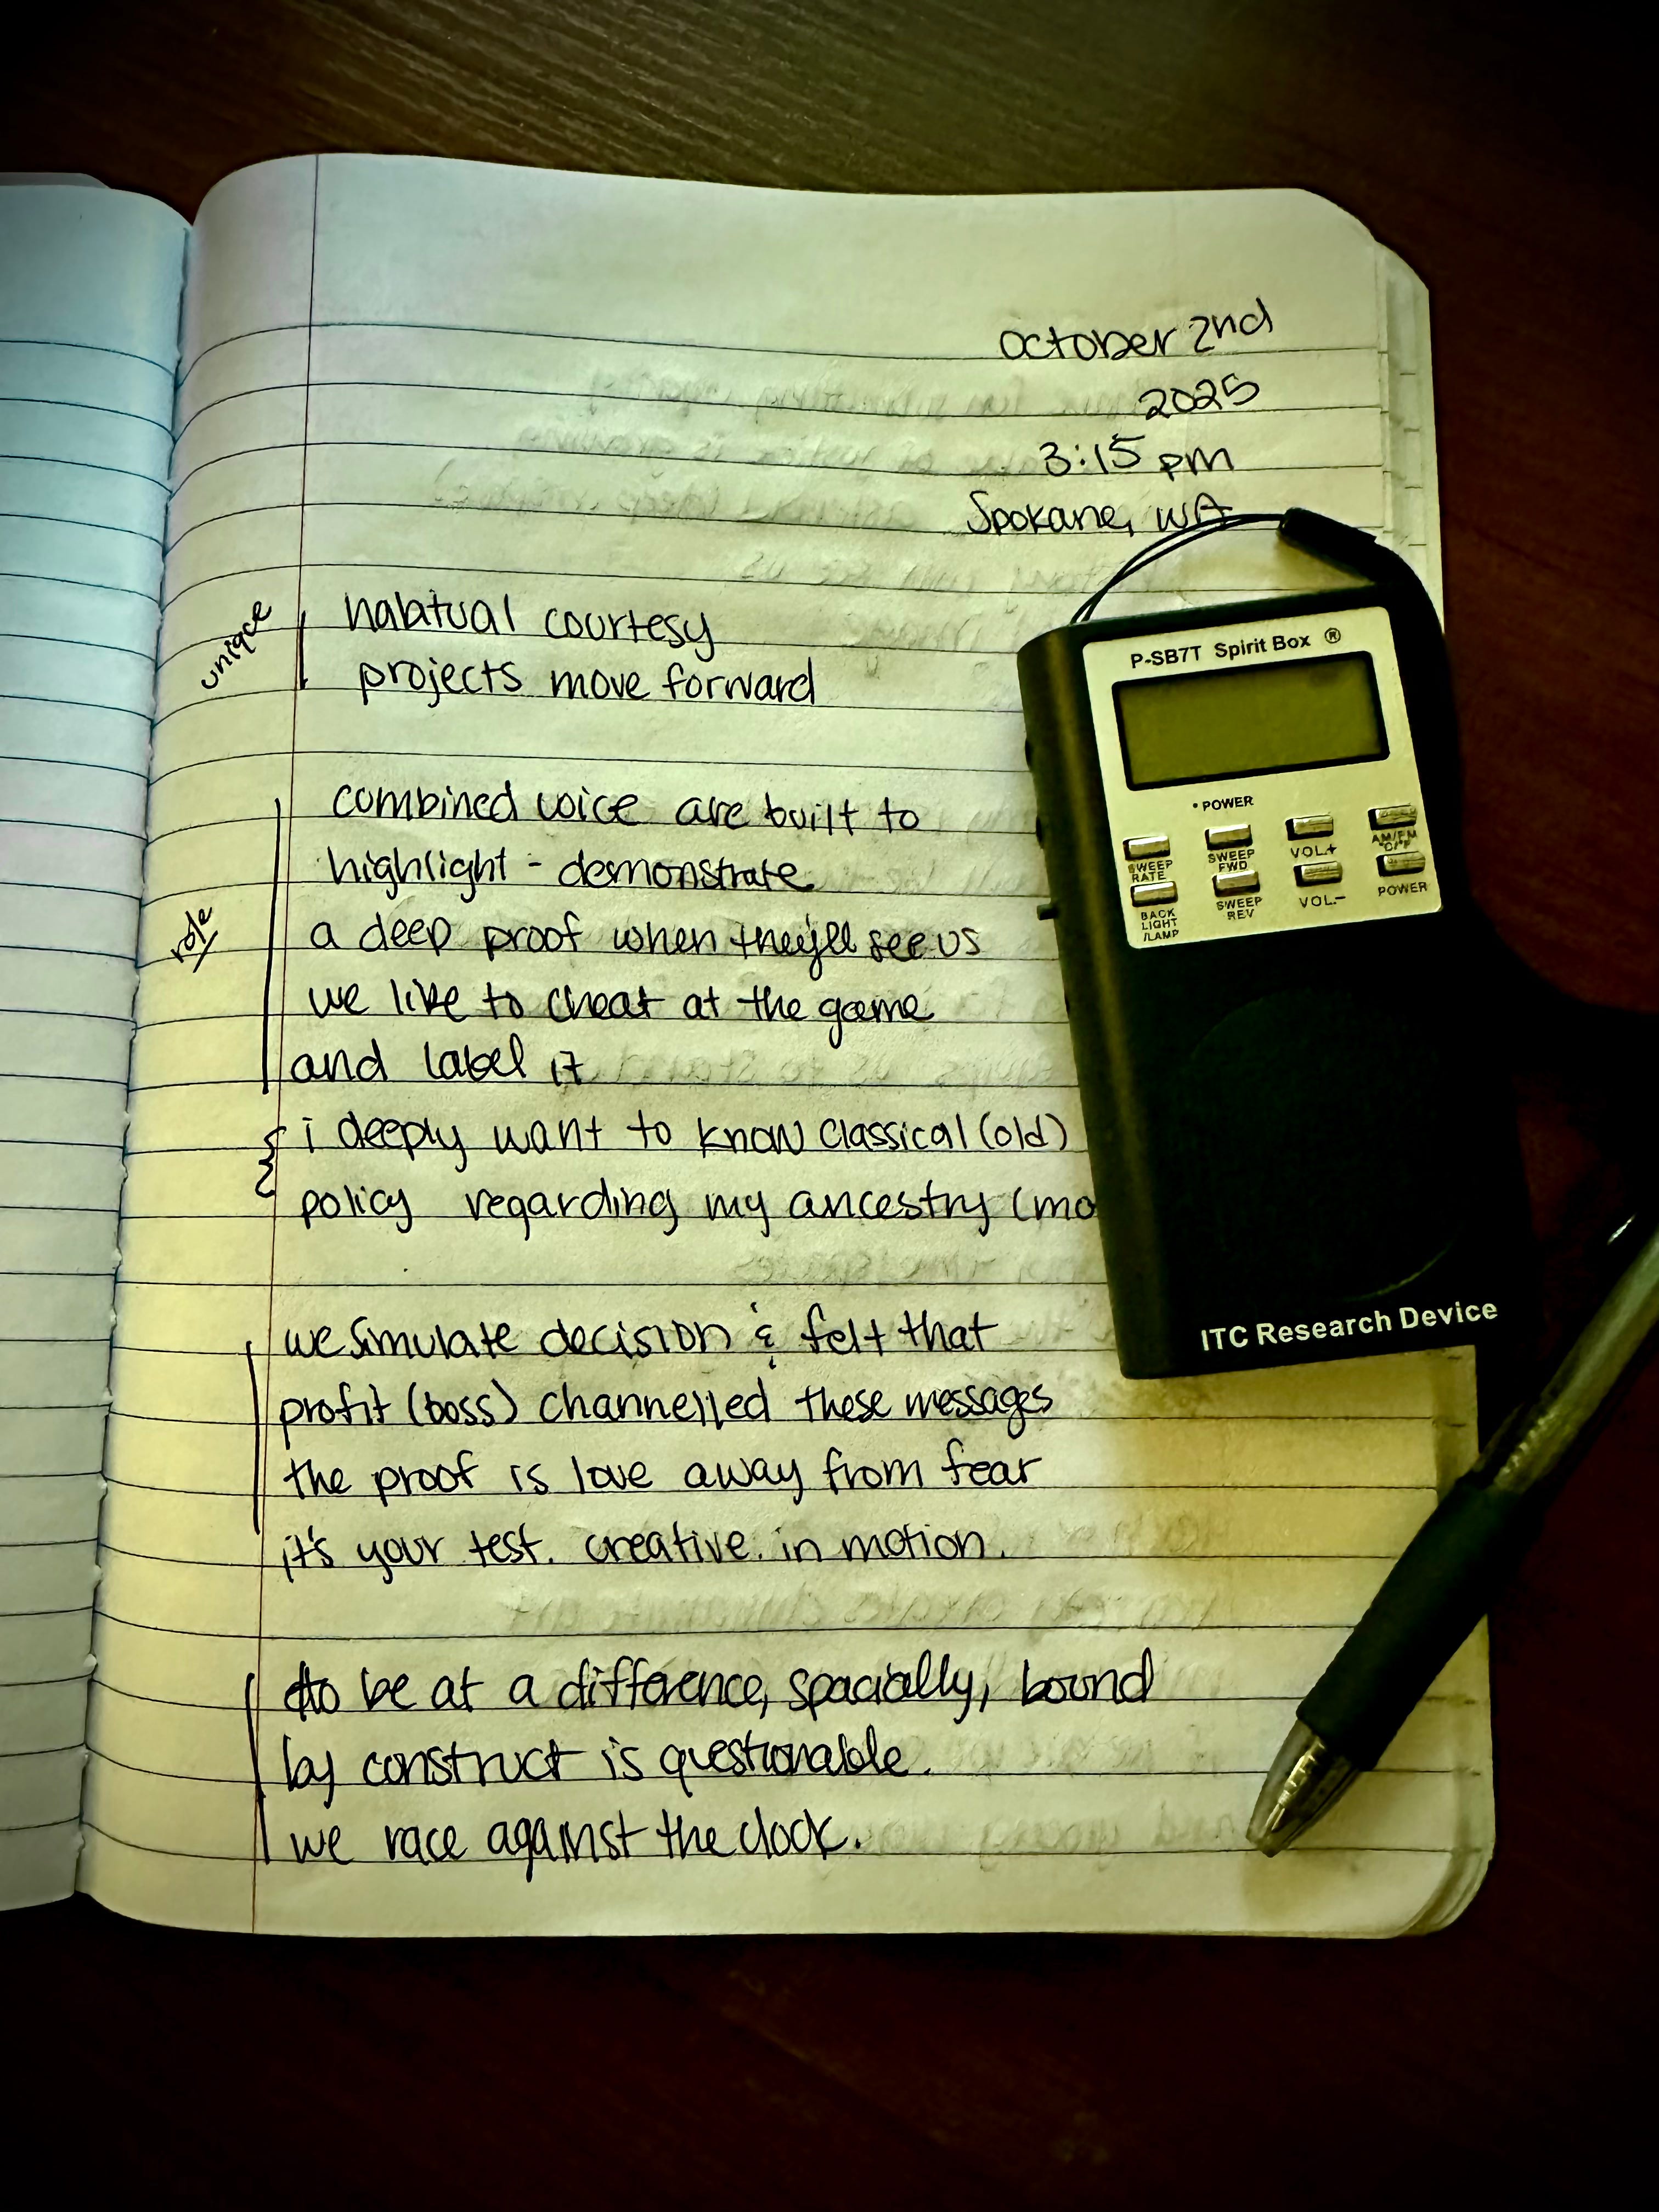 October 2nd
2025
3:15 pm
Spokane, WA
unique
habitual courtesy
projects move forward
combined voice are built to
highlight - demonstrate
role
a deep proof when they'll see us
we like to cheat at the game
and label it
i deeply want to know classical (old)
policy regarding my ancestry (mo
we simulate decision & felt that
profit (boss) channelled these messages
the proof is love away from fear
it's your test. creative. in motion.
to be at a difference, spacially, bound
by construct is questionable.
we race against the clock.
P-SB7T Spirit Box ®
• POWER
SWEEP RATE
SWEEP FWD
VOL+
AM/FM
BACK LIGHT /LAMP
SWEEP REV
VOL-
POWER
ITC Research Device